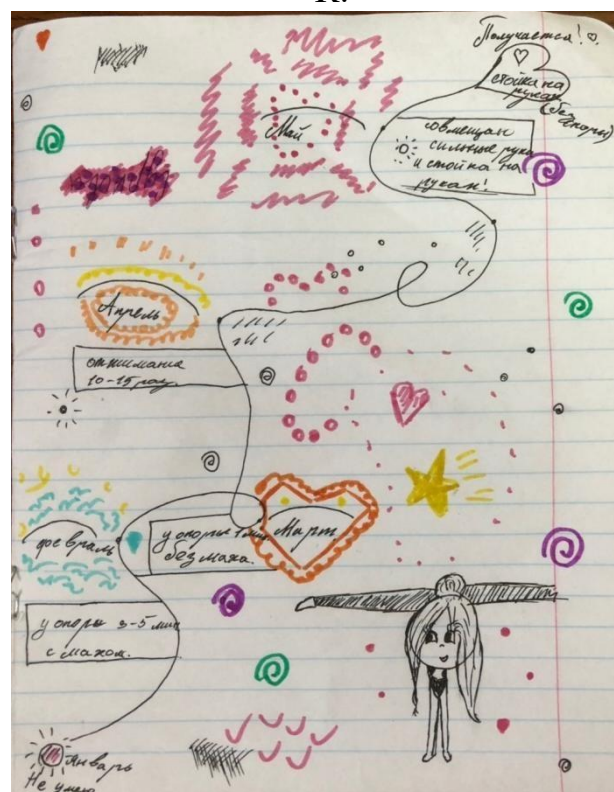 Получается!
стойка на
руках
(без
опоры)
Май
совмещаю
сильные руки
и стойка на
руках!
Апрель
отжимания
10-15 раз
Март
у опоры 1 мин.
без маха.
февраль
у опоры 3-5 мин
с махом.
Январь
Не умею